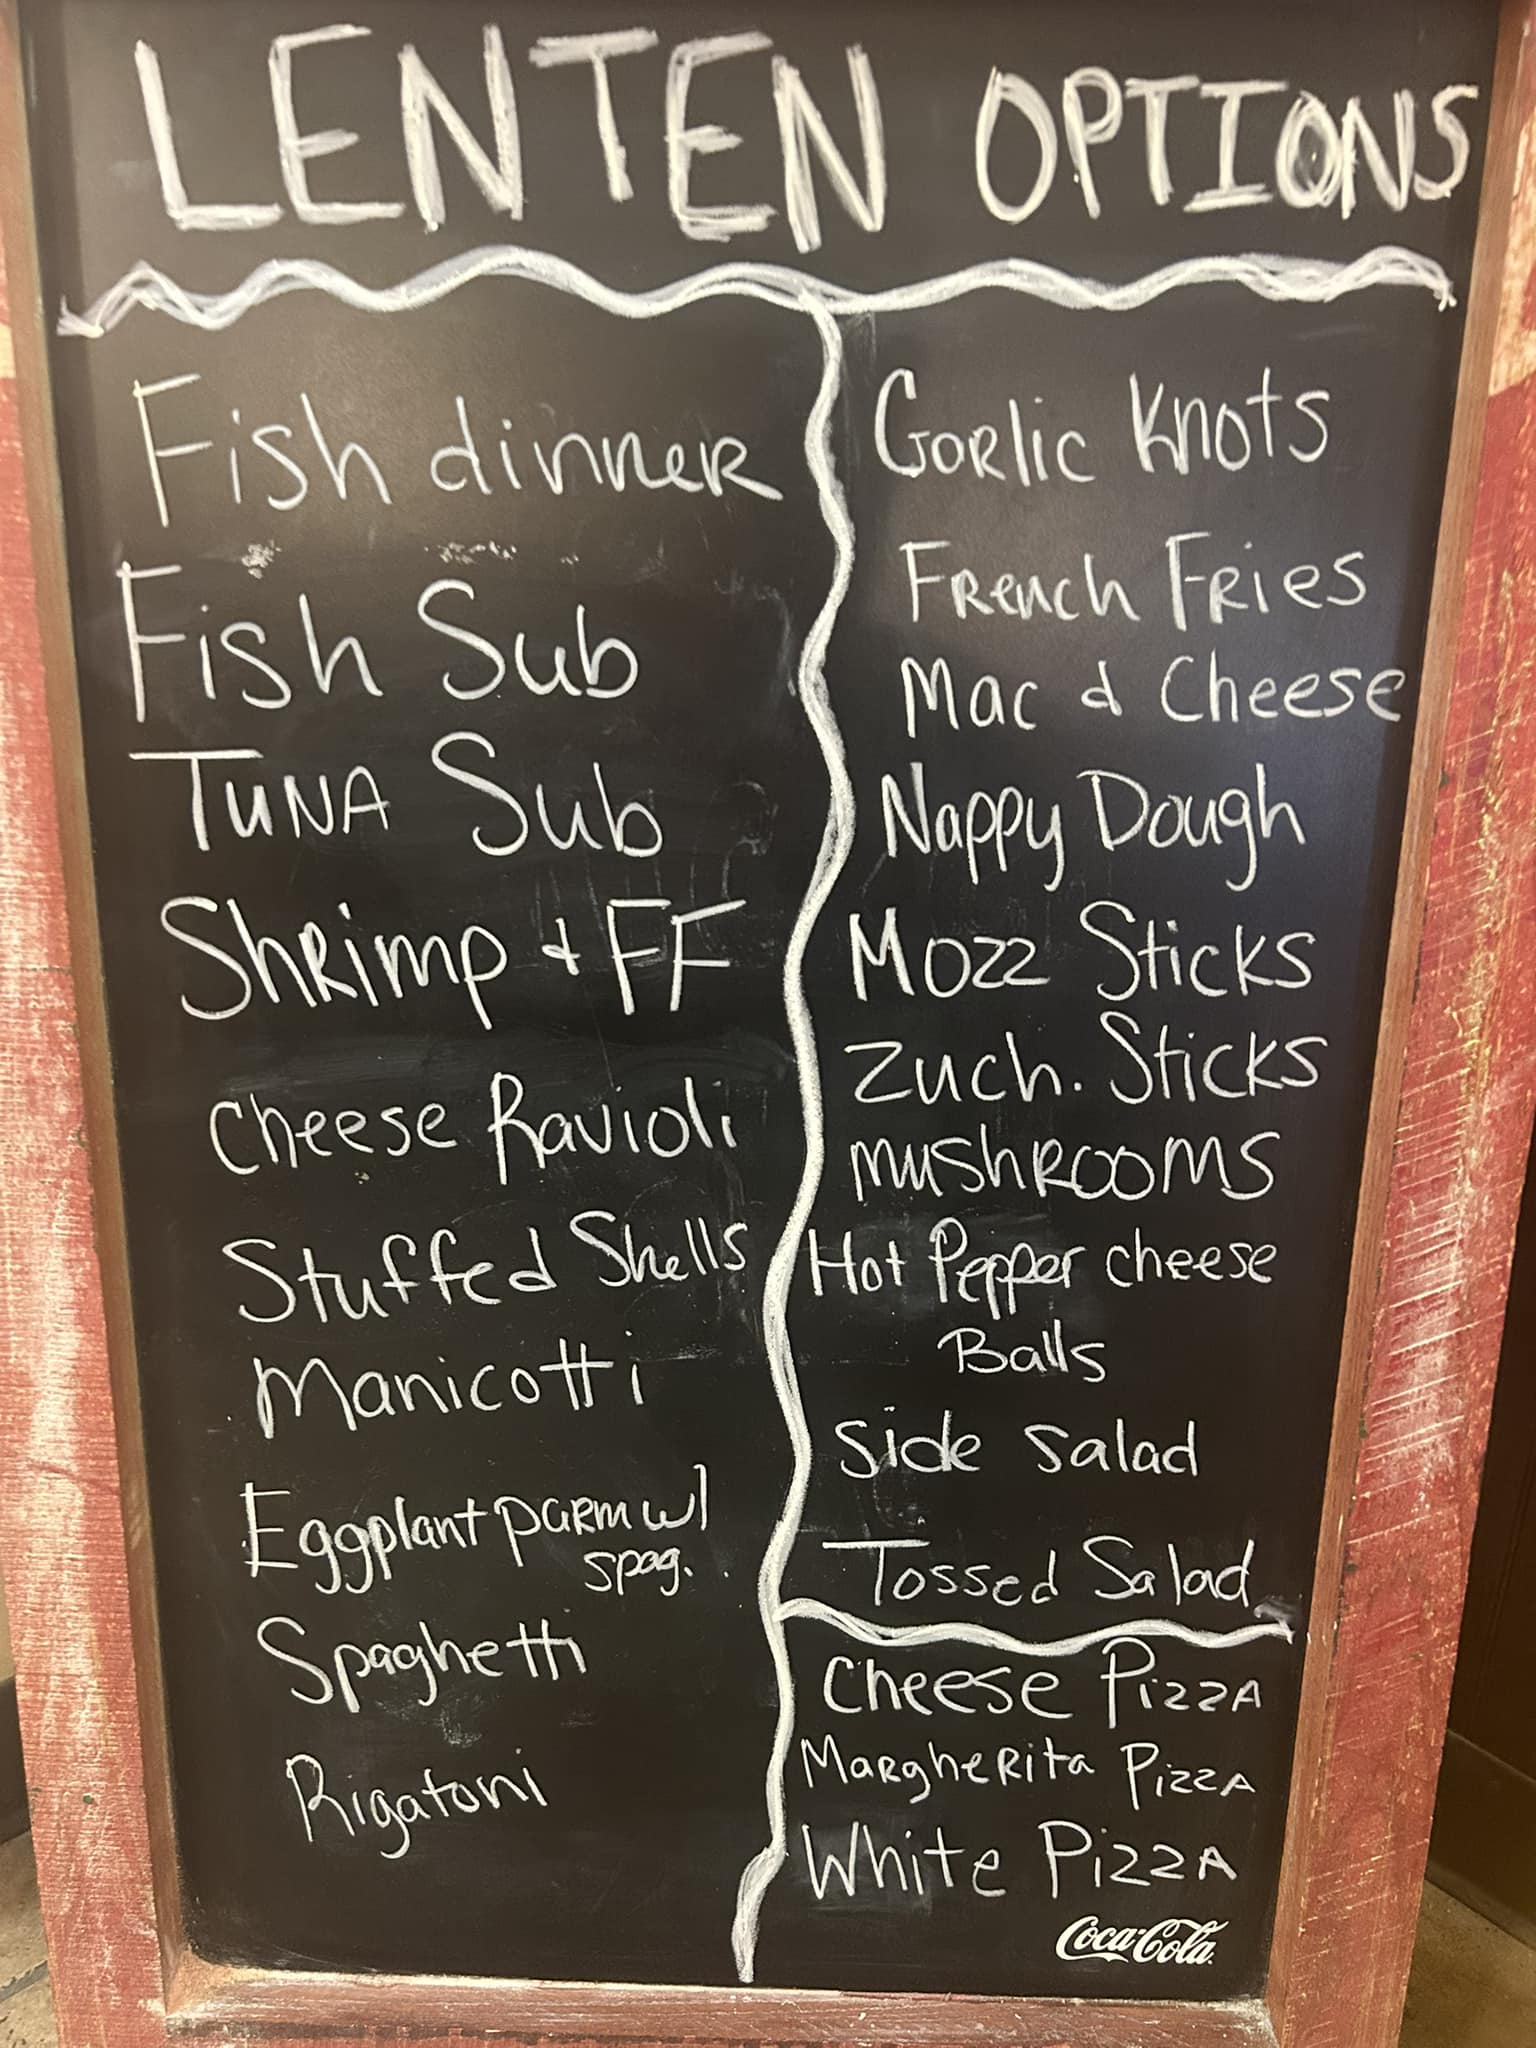 LENTEN OPTIONS
Fish dinner
Fish Sub
TUNA Sub
Shrimp & FF
Cheese Ravioli
Stuffed Shells
Manicotti
Eggplant parm w/
spag.
Spaghetti
Rigatoni
Garlic Knots
French Fries
Mac & Cheese
Nappy Dough
Mozz Sticks
Zuch. Sticks
mushrooms
Hot Pepper cheese
Balls
Side Salad
Tossed Salad
Cheese Pizza
Margherita Pizza
White Pizza
Coca-Cola